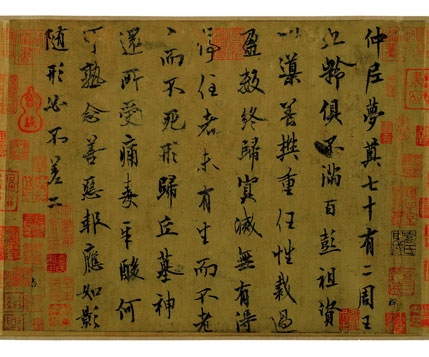 仲尼夢奠七十有二周王
九齡俱不滿百彭祖資
以導養樊重任性裁過
盈數終歸冥滅無有得
停住者未有生而不老
老而不死形歸丘墓神
還所受痛毒辛酸何
可熟念善惡報應如影
隨形必不差二